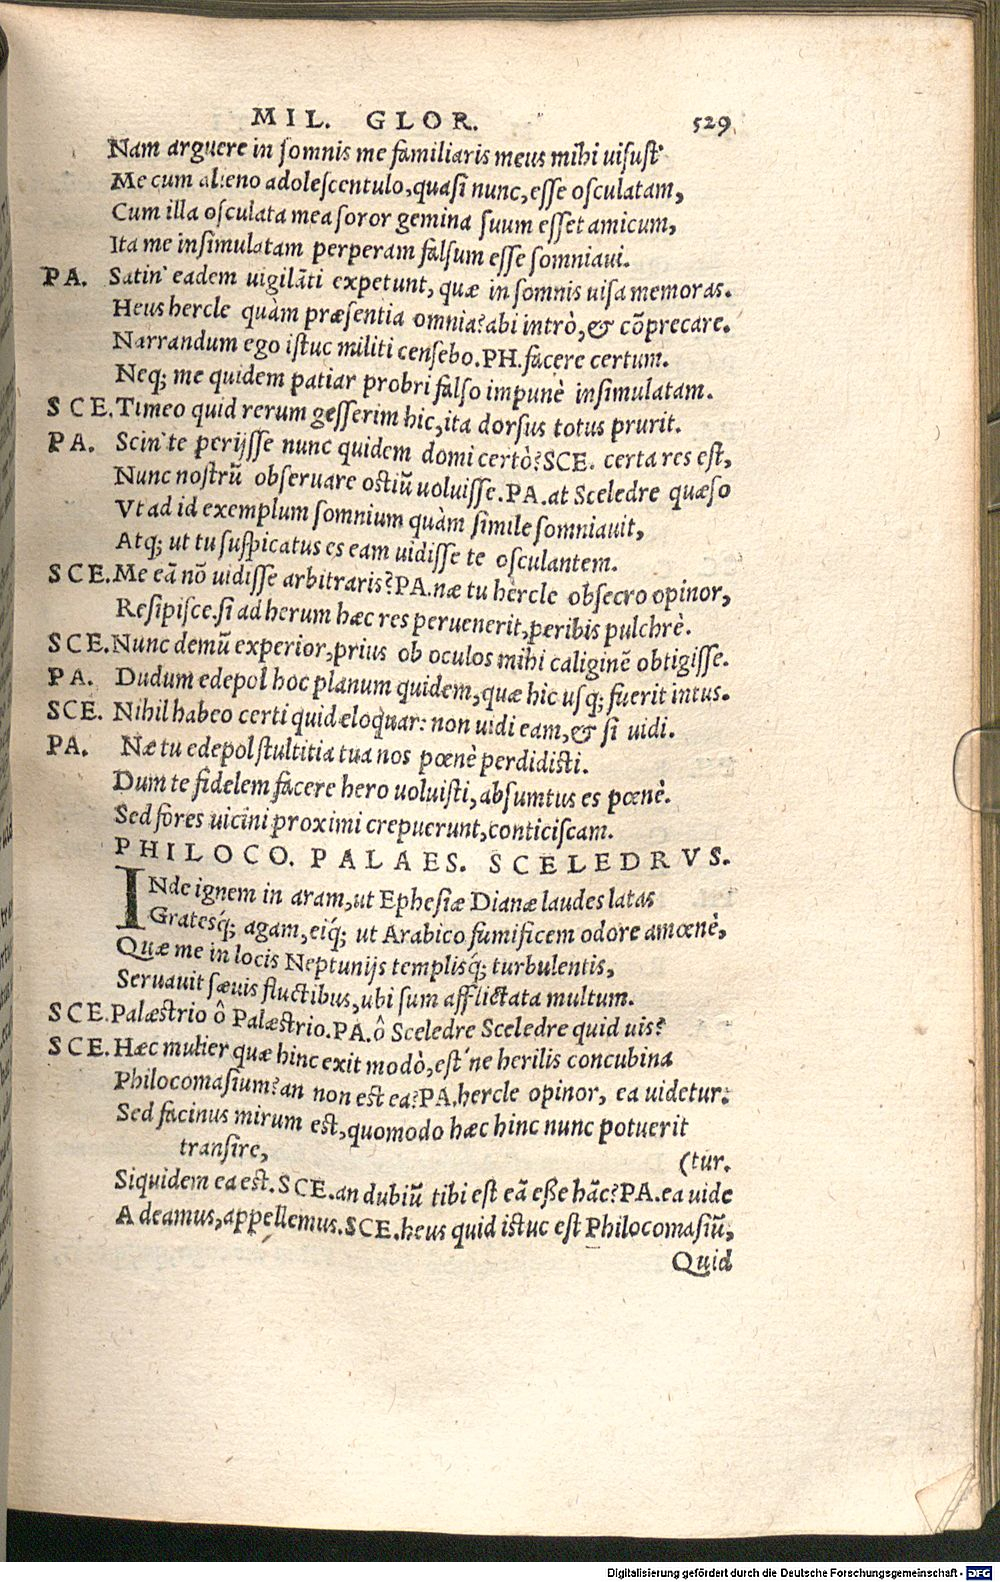 MIL. GLOR. 529
Nam arguere in somnis me familiaris meus mihi uisust
Me cum alieno adolescentulo, quasi nunc, esse osculatam,
Cum illa osculata mea soror gemina suum esset amicum,
Ita me insimulatam perperam falsum esse somniaui.
PA. Satin' eadem uigilāti expetunt, quæ in somnis uisa memoras.
Heus hercle quàm præsentia omnia? abi intrò, & cōprecare.
Narrandum ego istuc militi censebo. PH. facere certum.
Neq; me quidem patiar probri falso impunè insimulatam.
SCE. Timeo quid rerum gesserim hic, ita dorsus totus prurit.
PA. Scin' te perijsse nunc quidem domi certò? SCE. certa res est,
Nunc nostrū obseruare ostiū uoluisse. PA. at Sceledre quæso
Vt ad id exemplum somnium quàm simile somniauit,
Atq; ut tu suspicatus es eam uidisse te osculantem.
SCE. Me eā nō uidisse arbitraris? PA. næ tu hercle obsecro opinor,
Resipisce. si ad herum hæc res peruenerit, peribis pulchrè.
SCE. Nunc demū experior, prius ob oculos mihi caliginē obtigisse.
PA. Dudum edepol hoc planum quidem, quæ hic usq; fuerit intus.
SCE. Nihil habeo certi quid eloquar: non uidi eam, & si uidi.
PA. Næ tu edepol stultitia tua nos pœnè perdidisti.
Dum te fidelem facere hero uoluisti, absumtus es pœnè.
Sed fores uicini proximi crepuerunt, conticiscam.
PHILOCO. PALAES. SCELEDRVS.
INde ignem in aram, ut Ephesiæ Dianæ laudes latas
Gratesq́; agam, eiq́; ut Arabico fumificem odore amœnè,
Quæ me in locis Neptunijs templisq́; turbulentis,
Seruauit sæuis fluctibus, ubi sum afflictata multum.
SCE. Palæstrio ô Palæstrio. PA. ô Sceledre Sceledre quid uis?
SCE. Hæc mulier quæ hinc exit modò, est'ne herilis concubina
Philocomasium? an non est ea? PA. hercle opinor, ea uidetur:
Sed facinus mirum est, quomodo hæc hinc nunc potuerit
transire, (tur.
Siquidem ea est. SCE. an dubiū tibi est eā eße hāc? PA. ea uide
Adeamus, appellemus. SCE. heus quid istuc est Philocomasiū,
Quid
Digitalisierung gefördert durch die Deutsche Forschungsgemeinschaft - DFG